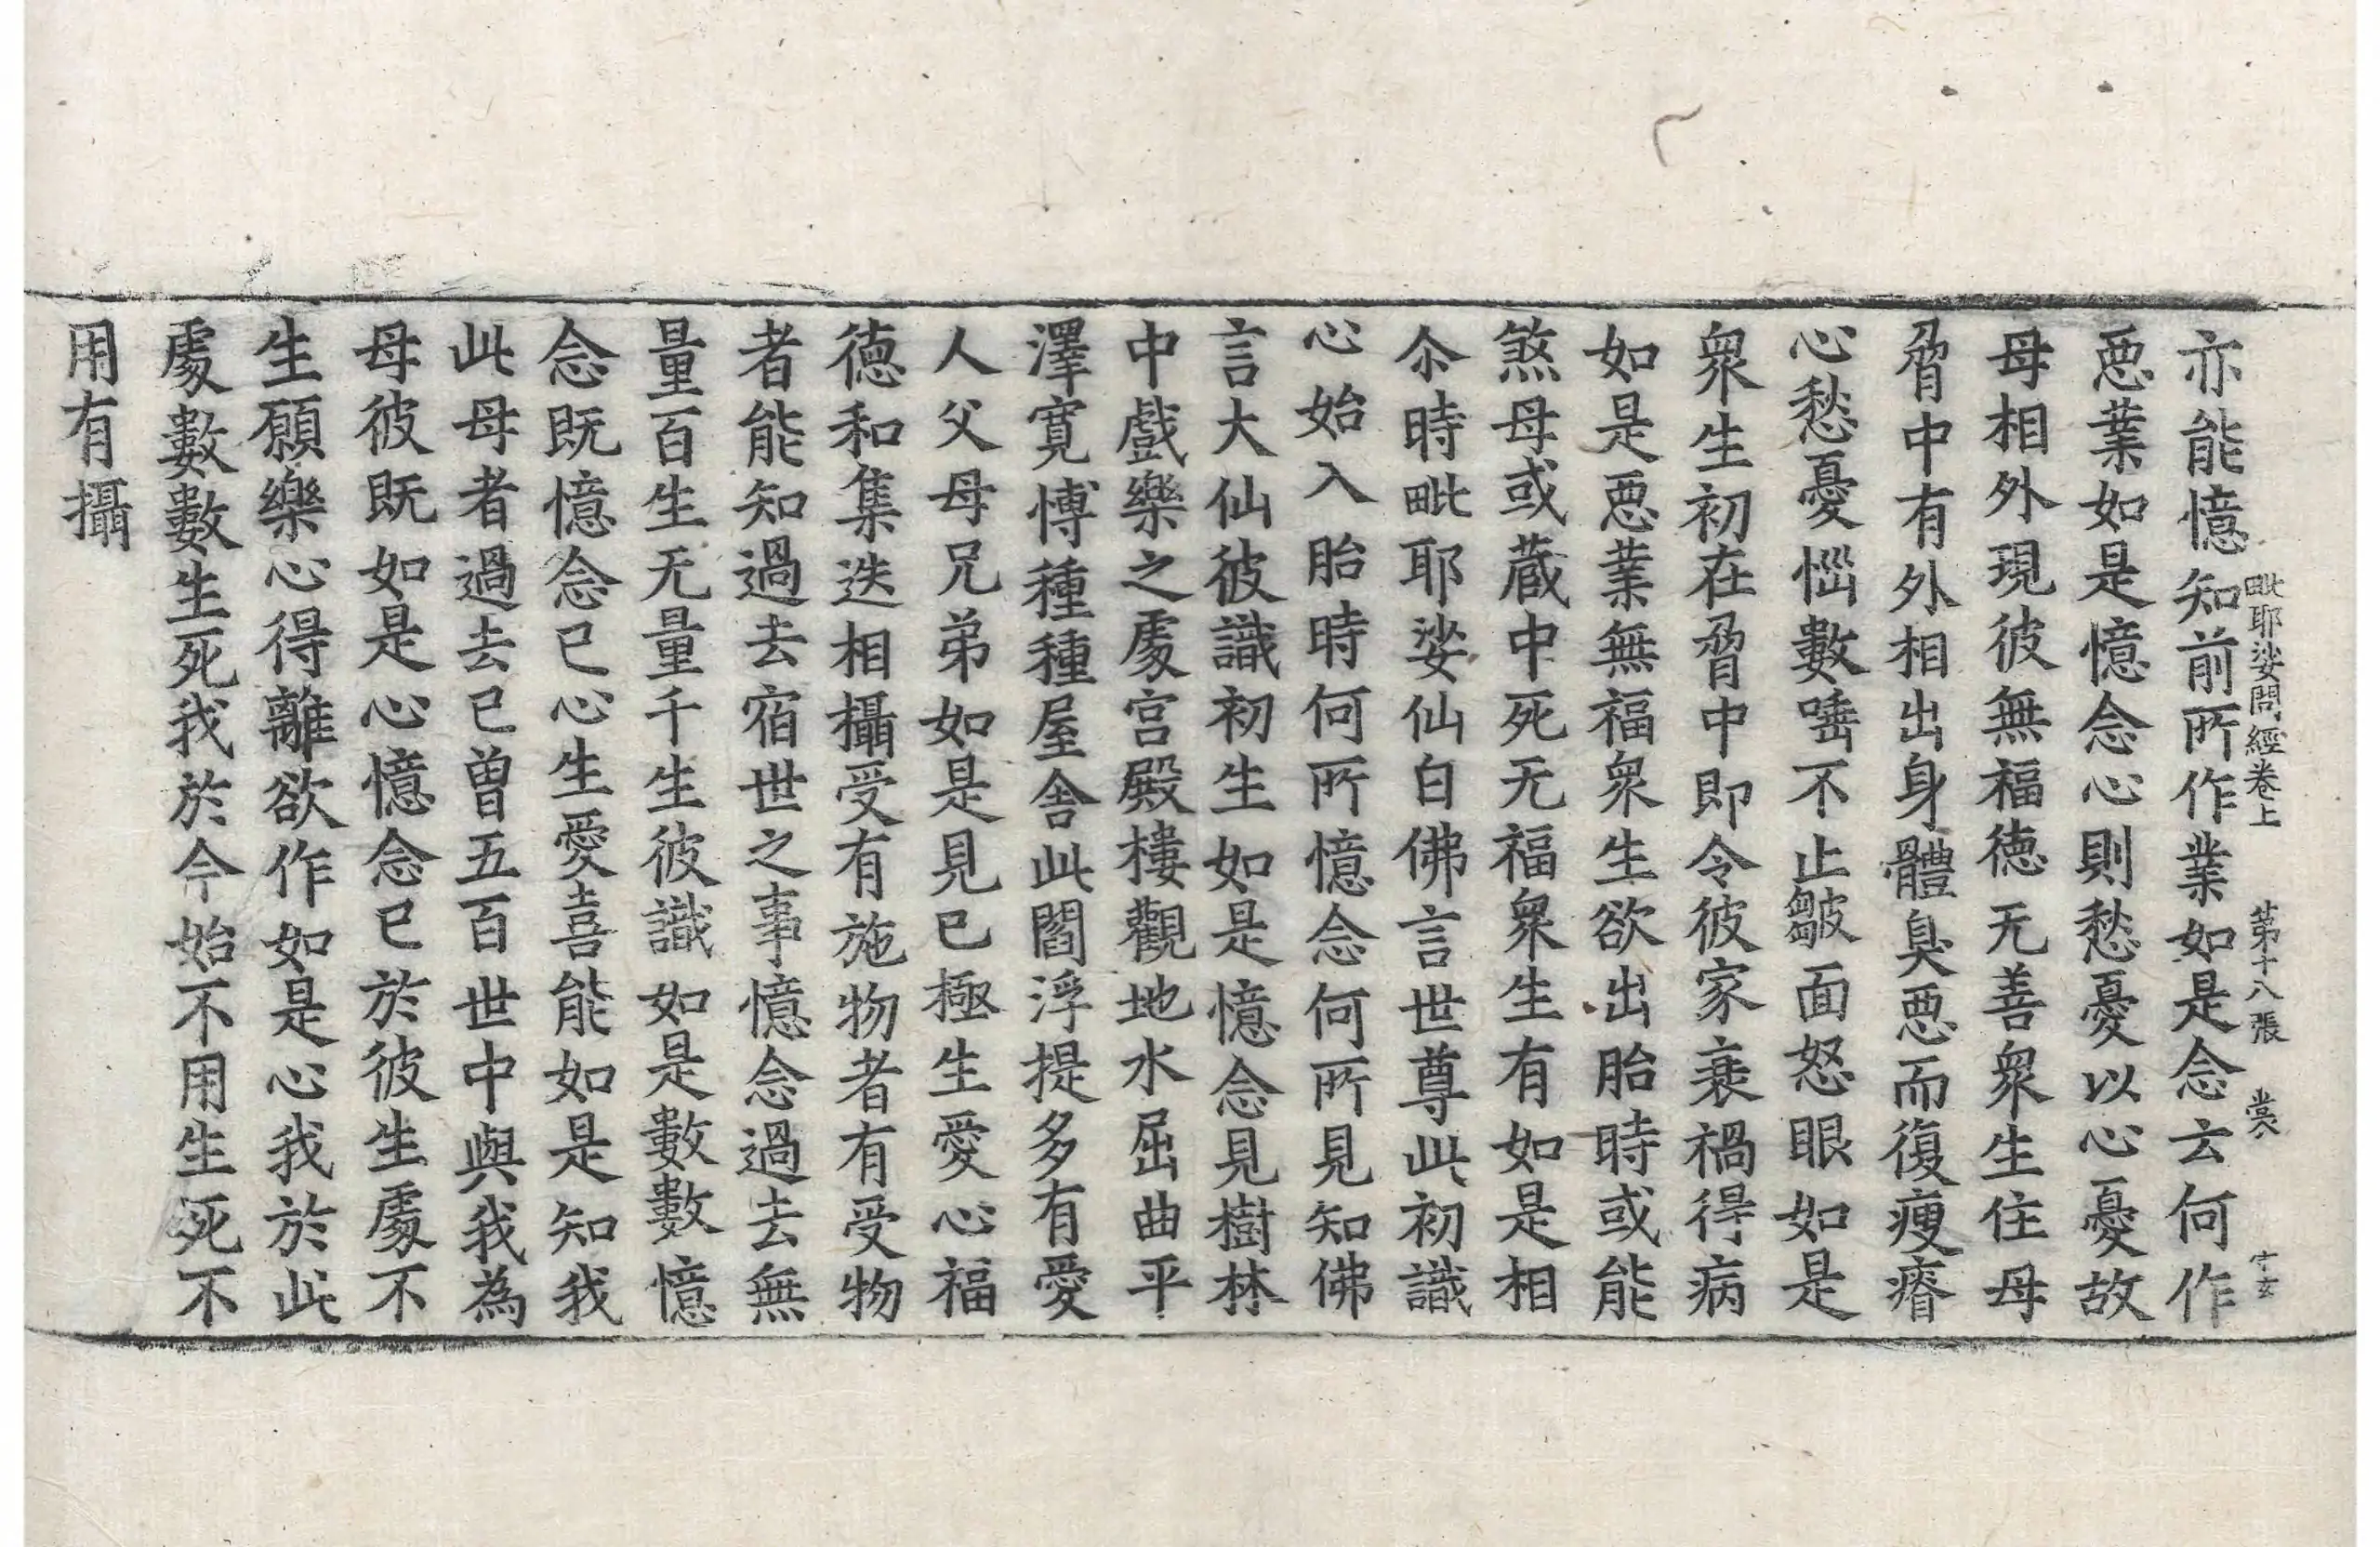 毗耶娑問經卷上 第十八張 裳 守玄
亦能憶知前所作業如是念云何作
惡業如是憶念心則愁憂以心憂故
母相外現彼無福徳无善衆生住母
脅中有外相出身體臭惡而復瘦瘠
心愁憂惱數唾不止皺面怒眼如是
衆生初在脅中即令彼家衰禍得病
如是惡業無福衆生欲出胎時或能
煞母或蔵中死无福衆生有如是相
尒時毗耶娑仙白佛言世尊此初識
心始入胎時何所憶念何所見知佛
言大仙彼識初生如是憶念見樹林
中戲樂之處宮殿樓觀地水屈曲平
澤寛愽種種屋舍此閻浮提多有愛
人父母兄弟如是見已極生愛心福
徳和集迭相攝受有施物者有受物
者能知過去宿世之事憶念過去無
量百生无量千生彼識如是數數憶
念既憶念已心生愛喜能如是知我
此母者過去已曾五百世中與我為
母彼既如是心憶念已於彼生處不
生願樂心得離欲作如是心我於此
處數數生死我於今始不用生死不
用有攝